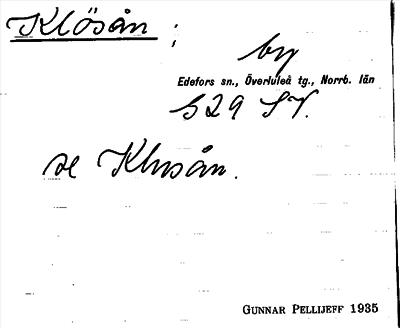 Klösån ;
by
Edefors sn., Överluleå tg., Norrb. län
529 SV.
se Klusån.
GUNNAR PELLIJEFF 1935